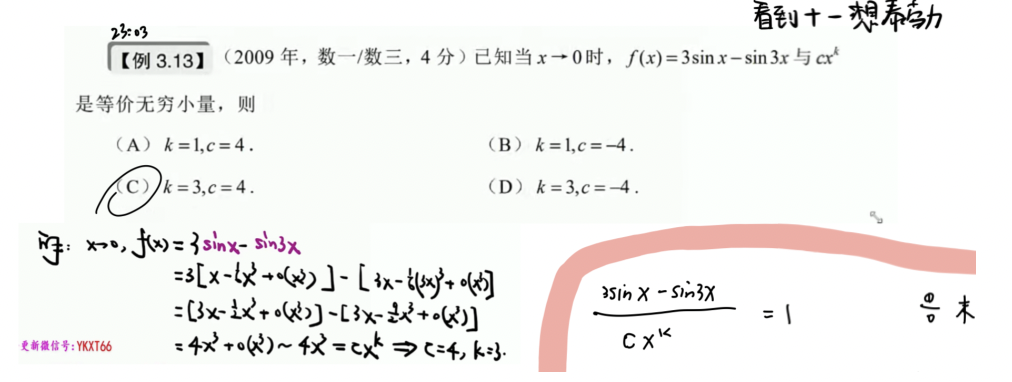 看到十一想泰勒
23:03
【例 3.13】（2009 年，数一/数三，4 分）已知当 x→0 时，f(x)=3sin x−sin 3x 与 cx^k
是等价无穷小量，则
（A）k=1,c=4.
（B）k=1,c=−4.
（C）k=3,c=4.
（D）k=3,c=−4.
解: x→0, f(x)=3sinx-sin3x
=3[x-1/6x³+o(x³)]-[3x-1/6(3x)³+o(x³)]
=[3x-1/2x³+o(x³)]-[3x-9/2x³+o(x³)]
=4x³+o(x³)~4x³=cx^k⇒c=4, k=3.
更新微信号:YKXT66
3sinx-sin3x
cx^k
=1
0/0 未